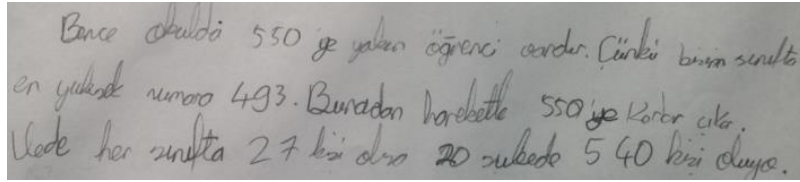 Bence okulda 550 ye yakın öğrenci vardır. Çünkü bizim sınıfta
en yüksek numara 493. Buradan hareketle 550 ye kadar çıkar.
Vede her sınıfta 27 kişi olsa 20 şubede 540 kişi oluyo.